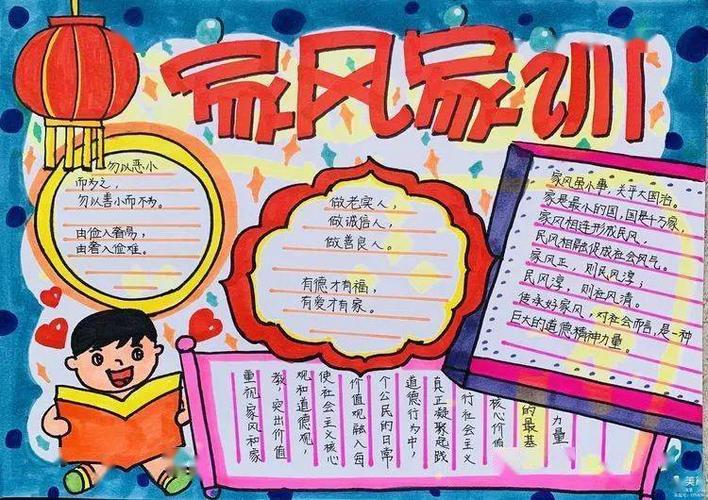 家风家训
勿以恶小
而为之，
勿以善小而不为。
由俭入奢易，
由奢入俭难。
做老实人，
做诚信人，
做善良人。
有德才有福，
有爱才有家。
家风虽小事，关乎大国治。
家是最小的国，国是千万家，
家风相连形成民风，
民风相融促成社会风气。
家风正，则民风淳；
民风淳，则社风清。
传承好家风，对社会而言，是一种
巨大的道德精神力量。
重视家风和家
教，突出价值
观和道德观，
使社会主义核心
价值观融入每
个公民的日常
道德行为中，
真正凝聚起践
行社会主义
核心价值
的最基
力量